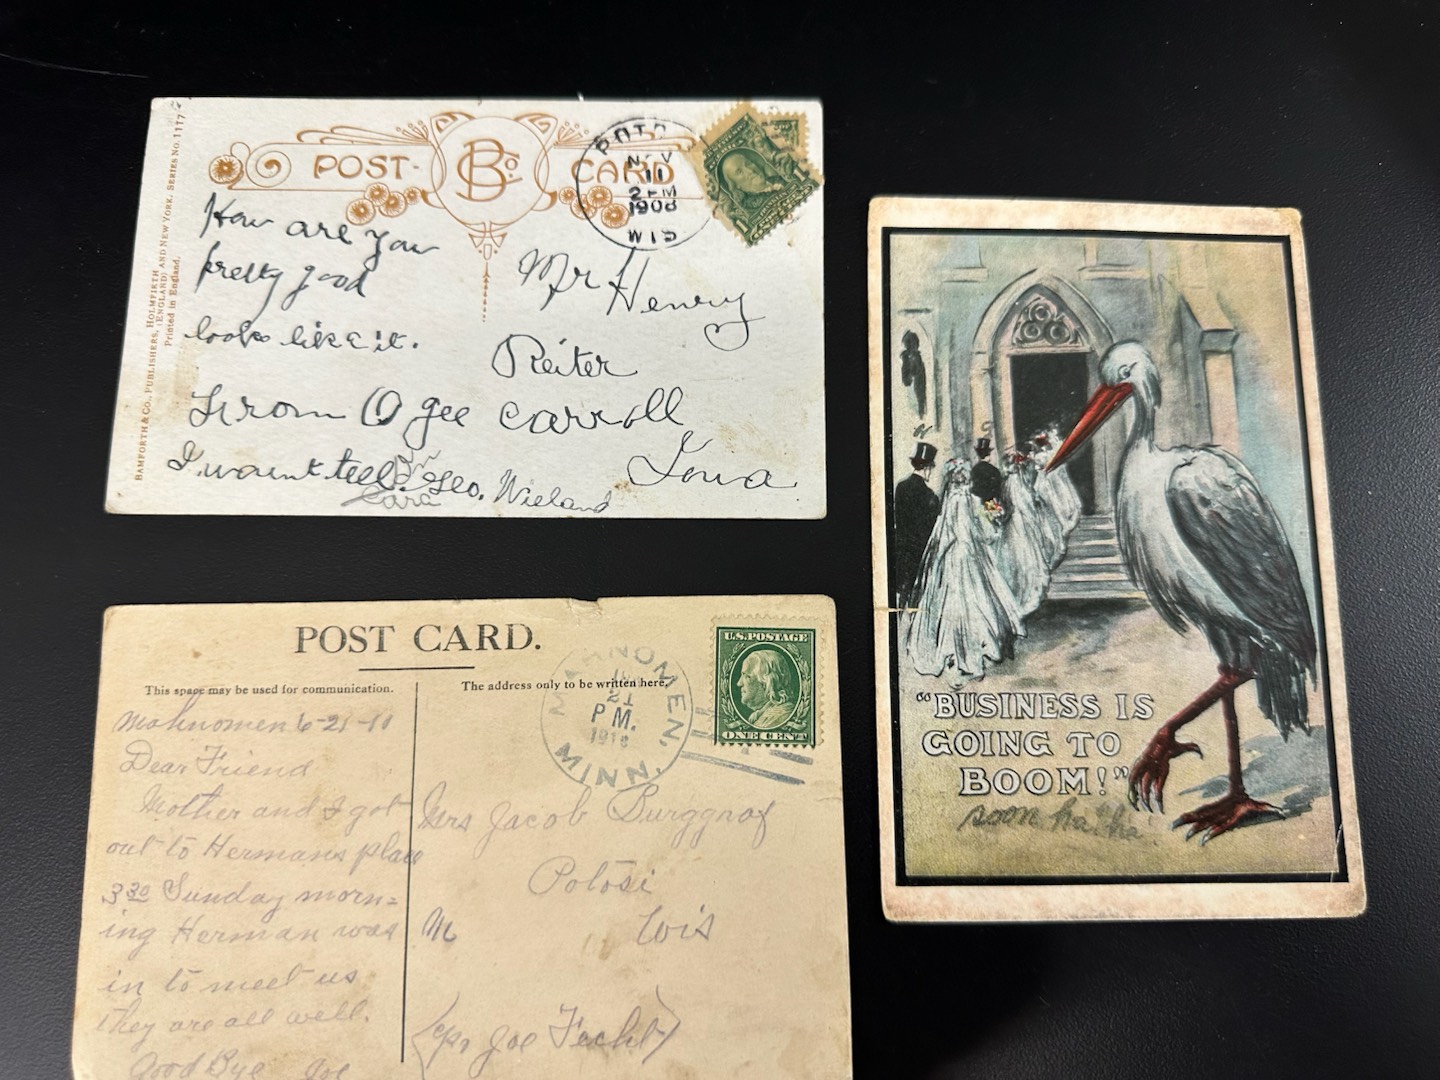 BAMFORTH & CO., PUBLISHERS, HOLMFIRTH
(ENGLAND) AND NEW YORK. SERIES NO. 1177
Printed in England.
POST-CARD
BCo
NOV
11
2 PM
1908
WIS
How are you
pretty good
looks like it.
From O gee
I. wount tell.
Geo. Wieland
Mr Henry
Reiter
Carroll
Iowa.
POST CARD.
This space may be used for communication.
The address only to be written here.
MAHNOMEN,
21
P M.
MINN.
U.S. POSTAGE
ONE CENT
Mahnomen 6-21-10
Dear Friend
Mother and I got
out to Hermans place
3 30 Sunday morn=
ing Herman was
in to meet us
they are all well.
Good Bye Joe
Mrs Jacob Burggraf
Potosi
Wis
Joe Fecht)
"BUSINESS IS
GOING TO
BOOM!"
soon ha ha!